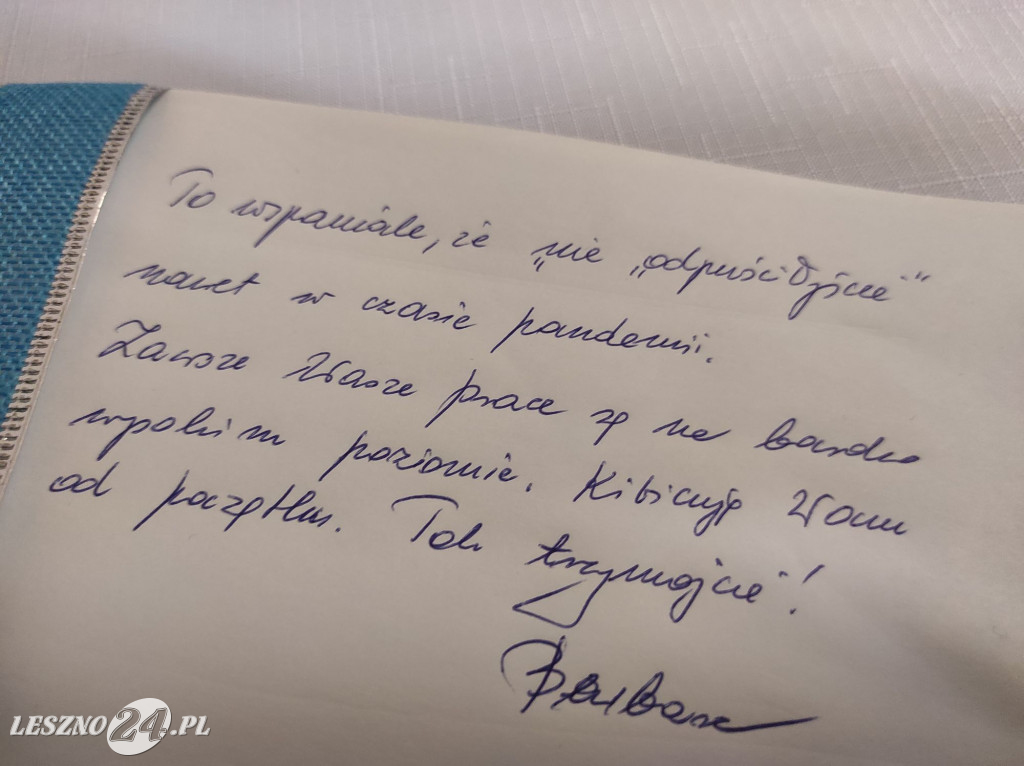 To wspaniale, że „nie „odpuściłyście"
nawet w czasie pandemii.
Zawsze Wasze prace są na bardzo
wysokim poziomie. Kibicuję Wam
od początku. Tak trzymajcie!
LESZNO24.PL